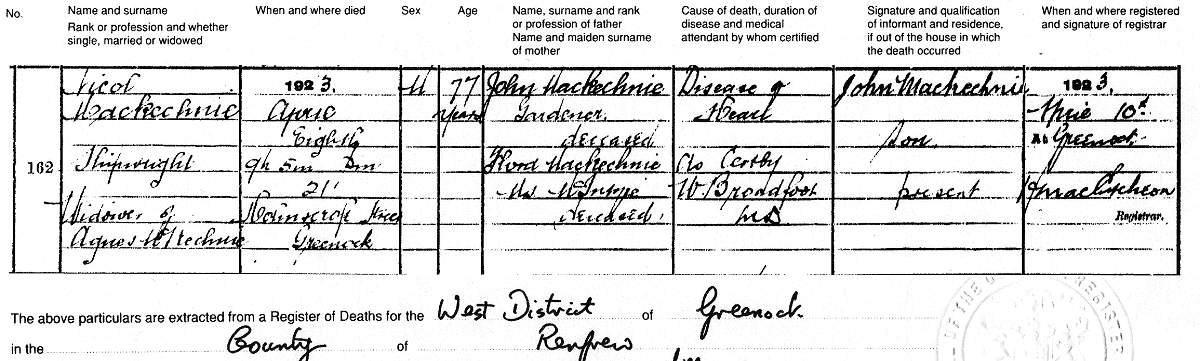 No.
Name and surname
Rank or profession and whether
single, married or widowed
When and where died
Sex
Age
Name, surname and rank
or profession of father
Name and maiden surname
of mother
Cause of death, duration of
disease and medical
attendant by whom certified
Signature and qualification
of informant and residence,
if out of the house in which
the death occurred
When and where registered
and signature of registrar
162
Nicol
Mackechnie
Shipwright
Widower of
Agnes
1923.
April
Eighth
9h 5m
21
Street
Greenock
M
77
years
John Mackechnie
Gardener,
deceased
Mackechnie
deceased.
Disease of
Heart
As Cert by
W. Broadfoot
MD
John Mackechnie
son
present
1923.
April 10th
At Greenock
Registrar.
The above particulars are extracted from a Register of Deaths for the West District of Greenock.
in the County of Renfrew